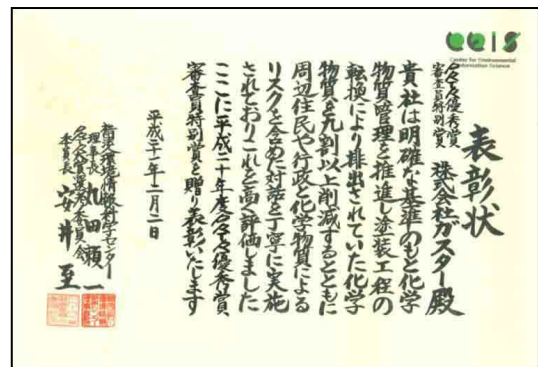 CEIS
Center for Environmental
Information Science
表彰状
優秀賞
審査員特別賞 株式会社ガスター殿
貴社は明確な基準のもと化学
物質管理を推進し塗装工程の
転換により排出されていた化学
物質を九割以上削減するとともに
周辺住民や行政と化学物質による
リスクを含めた対話を丁寧に実施
されておりこれを高く評価しました
ここに平成二十年度優秀賞、
審査員特別賞を贈り表彰いたします
平成二十一年二月二日
環境情報科学センター
理事長 丸田頼一
大賞選考委員会
委員長 安井至